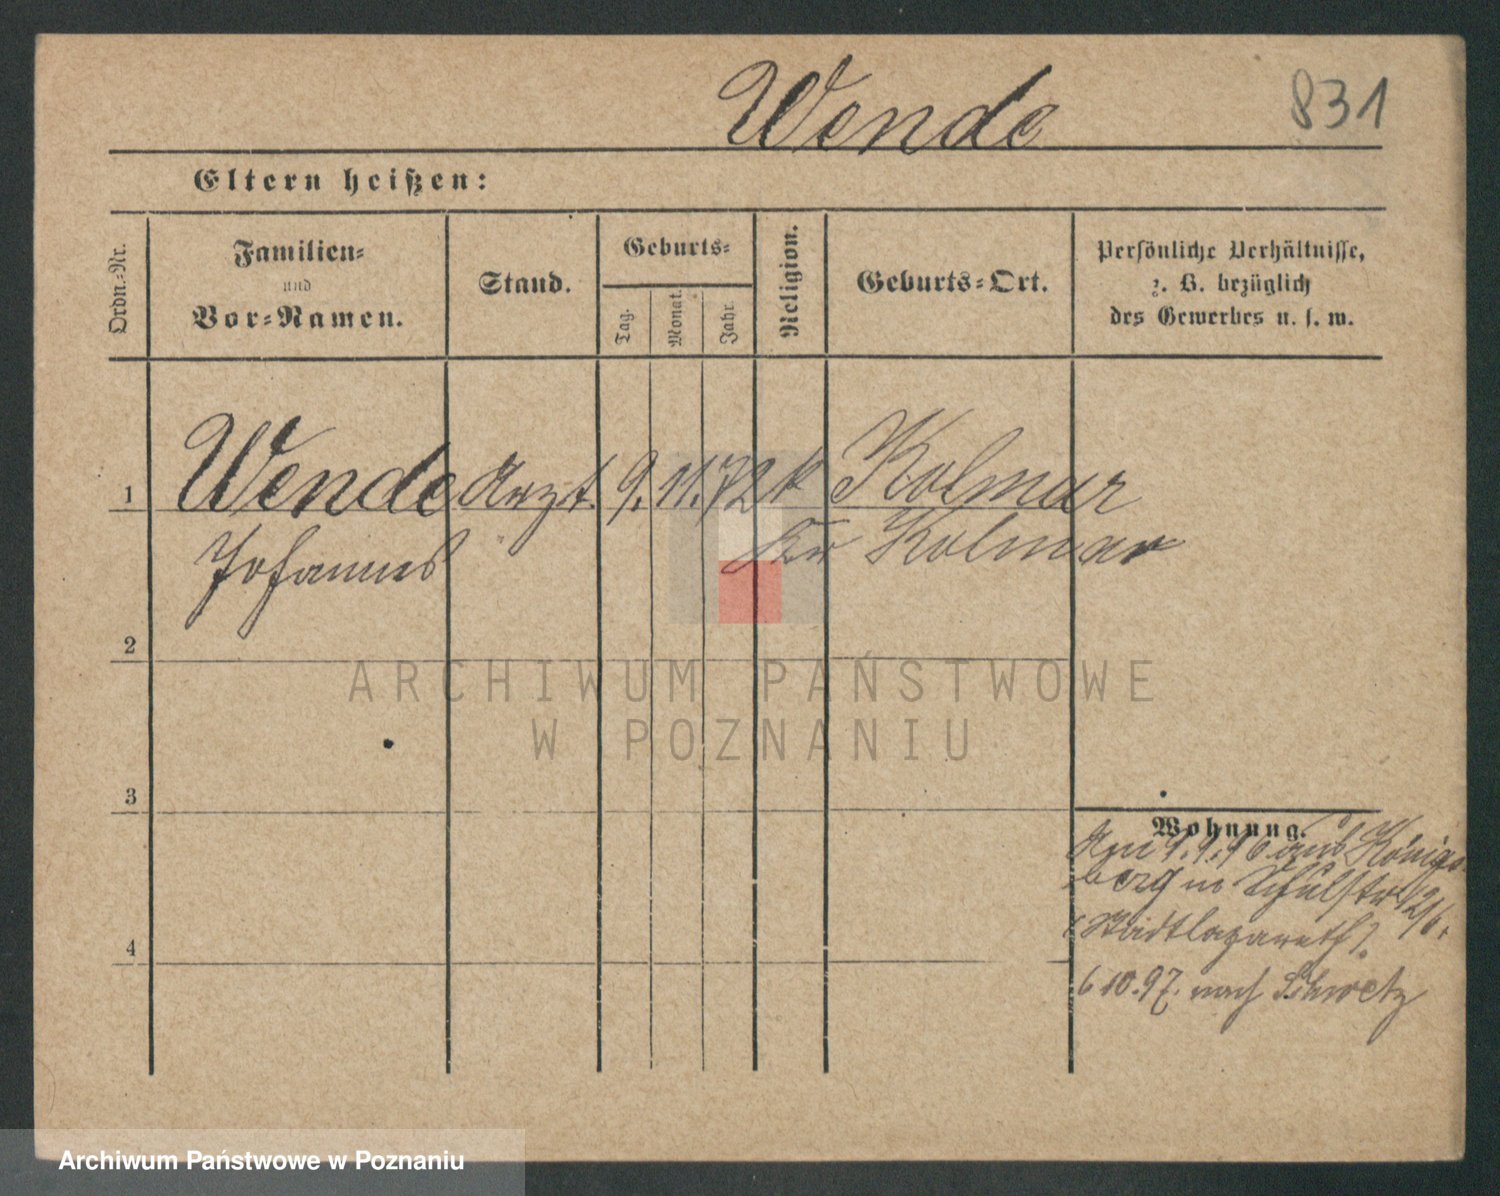 Wende
831
Eltern heißen:
Ordn.-Nr.
Familien-
und
Vor-Namen.
Stand.
Geburts-
Tag.
Monat.
Jahr.
Religion.
Geburts-Ort.
Persönliche Verhältnisse,
z. B. bezüglich
des Gewerbes u. s. w.
1
Wende Arzt 9. 11. 72 k Kolmar
Johannes Kr Kolmar
2
ARCHIWUM PAŃSTWOWE
W POZNANIU
3
Wohnung.
Am 1.1.96 aus Königs
berg in Schulstr 12/6.
(Stadtlazareth).
4
6 10.97. nach Schwetz
Archiwum Państwowe w Poznaniu